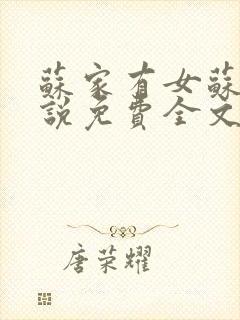 蘇家有女蘇
說免費全文
唐荣耀